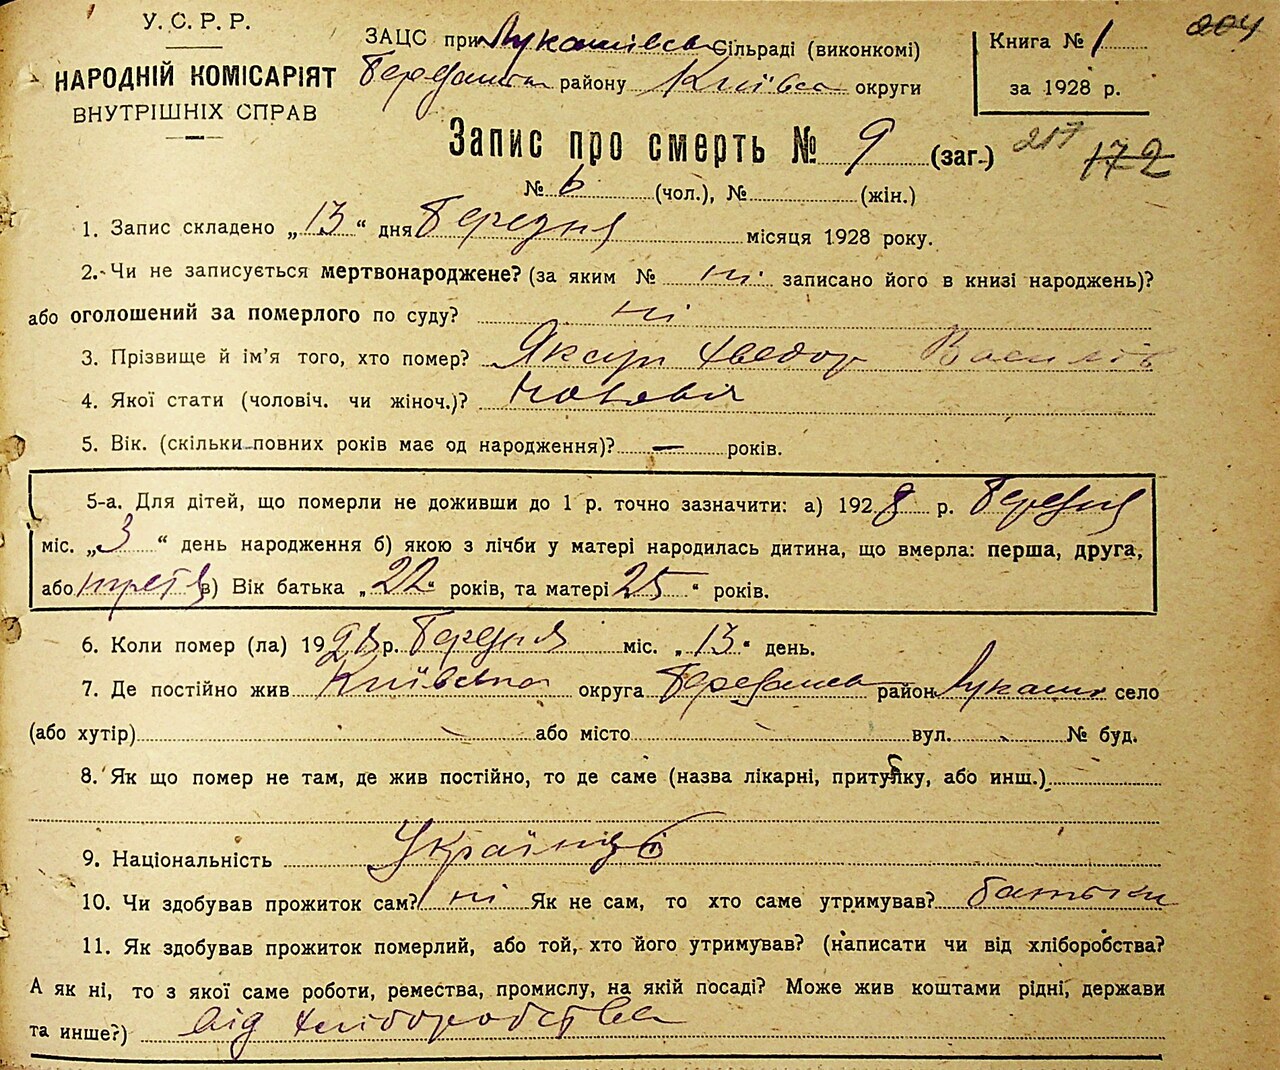 У.С.Р.Р.
НАРОДНІЙ КОМІСАРІЯТ
ВНУТРІШНІХ СПРАВ
ЗАЦС при Лукашівсь Сільраді (виконкомі)
району Київсь округи
Книга № 1
за 1928 р.
204
Запис про смерть № 9 (заг.)
217 172
№ 6 (чол.), № (жін.)
1. Запис складено „13“ дня Березня місяця 1928 року.
2. Чи не записується мертвонароджене? (за яким № ні записано його в книзі народжень)?
або оголошений за померлого по суду? ні
3. Прізвище й ім'я того, хто помер? Хведор Василів
4. Якої стати (чоловіч. чи жіноч.)?
5. Вік. (скільки повних років має од народження)? — років.
5-а. Для дітей, що померли не доживши до 1 р. точно зазначити: а) 1928 р. Березня
міс. „3“ день народження б) якою з лічби у матері народилась дитина, що вмерла: перша, друга,
або третя в) Вік батька „22“ років, та матері „25“ років.
6. Коли помер (ла) 1928 р. Березня міс. „13“ день.
7. Де постійно жив Київська округа район Лукаши село
(або хутір) або місто вул. № буд.
8. Як що помер не там, де жив постійно, то де саме (назва лікарні, притубку, або инш.)
9. Національність Українці
10. Чи здобував прожиток сам? ні Як не сам, то хто саме утримував? батьки
11. Як здобував прожиток померлий, або той, хто його утримував? (написати чи від хліборобства?
А як ні, то з якої саме роботи, ремества, промислу, на якій посаді? Може жив коштами рідні, держави
та инше?) від хліборобства